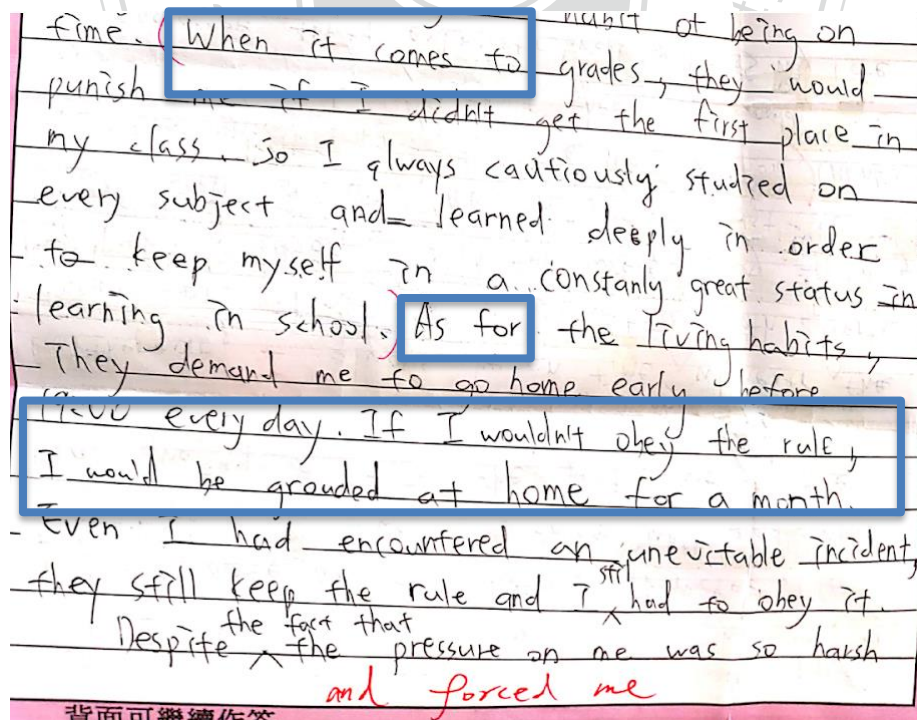 time. (When it comes to grades, they would
habit of being on
punish me if I didn't get the first place in
my class. So I always cautiously studied on
every subject and learned deeply in order
to keep myself in a constanly great status in
learning in school.) As for the living habits,
They demand me to go home early before
19:00 every day. If I wouldn't obey the rule,
I would be grouded at home for a month.
Even I had encountered an unevitable incident,
they still keep the rule and I still had to obey it.
Despite the fact that the pressure on me was so harsh
and forced me
背面可繼續作答